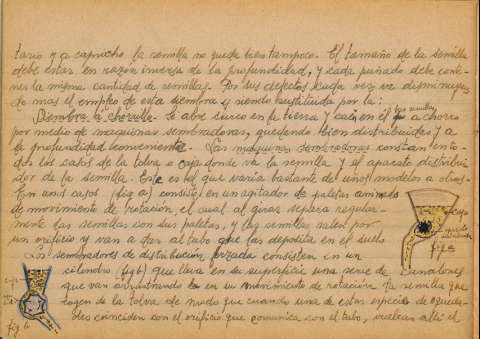 tario y a capricho la semilla no queda bien tampoco. El tamaño de la semilla
debe estar en razón inversa de la profundidad, y cada puñado debe conte-
ner la misma cantidad de semillas. Por sus defectos cada vez va disminuyen
do mas el empleo de esta siembra y siendo sustituida por la:
Siembra a chorrillo - Se abre surco en la tierra y caen en el las semillas a chorro
por medio de maquinas sembradoras, quedando bien distribuidas y a
la profundidad conveniente. Las maquinas sembradoras constan en to-
dos los casos de la tolva o caja donde va la semilla y el aparato distribui-
dor de la semilla. Este es el que varía bastante de unos modelos a otros.
En unos casos (fig a) consiste en un agitador de paletas animado
de movimiento de rotación, el cual al girar separa regular-
mente las semillas con sus paletas, y las semillas salen por
un orificio y van a dar al tubo que las deposita en el suelo
Las sembradoras de distribución forzada consisten en un
cilindro (fig b) que lleva en su superficie una serie de canalones
que van arrastrando en su movimiento de rotación la semilla que
cogen de la tolva de modo que cuando una de estas especies de oqueda-
des coinciden con el orificio que comunica con el tubo, vuelcan allí el
caja
fig a
caja
fig b